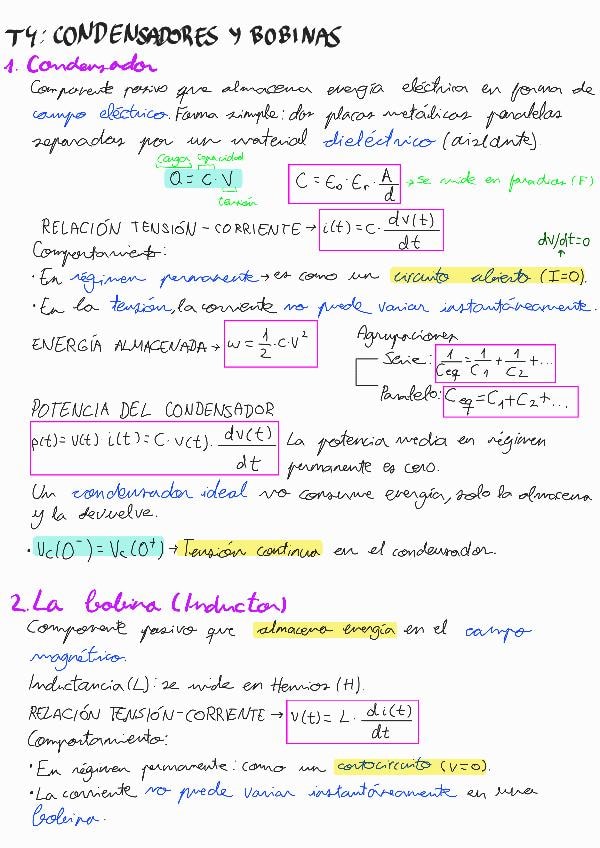 T4: CONDENSADORES Y BOBINAS
1. Condensador
Componente pasivo que almacena energía eléctrica en forma de
campo eléctrico. Forma simple: dos placas metálicas paralelas
separadas por un material dieléctrico (aislante).
Carga capacidad
Q = C · V
tensión
C = ε₀ · εr · A/d → Se mide en faradios (F)
RELACIÓN TENSIÓN-CORRIENTE → i(t) = C · dv(t)/dt
dv/dt=0
Comportamiento:
· En régimen permanente → es como un circuito abierto (I=0).
· En la tensión, la corriente no puede variar instantáneamente.
ENERGÍA ALMACENADA → w = 1/2 · C · V²
Agrupaciones
Serie: 1/Ceq = 1/C1 + 1/C2 + ...
Paralelo: Ceq = C1 + C2 + ...
POTENCIA DEL CONDENSADOR
p(t) = v(t) i(t) = C · v(t) · dv(t)/dt La potencia media en régimen
permanente es cero.
Un condensador ideal no consume energía, solo la almacena
y la devuelve.
· Vc(0⁻) = Vc(0⁺) → Tensión continua en el condensador.
2. La bobina (Inductor)
Componente pasivo que almacena energía en el campo
magnético.
Inductancia (L): se mide en Henrios (H).
RELACIÓN TENSIÓN-CORRIENTE → v(t) = L · di(t)/dt
Comportamiento:
· En régimen permanente: como un cortocircuito (V=0).
· La corriente no puede variar instantáneamente en una
bobina.